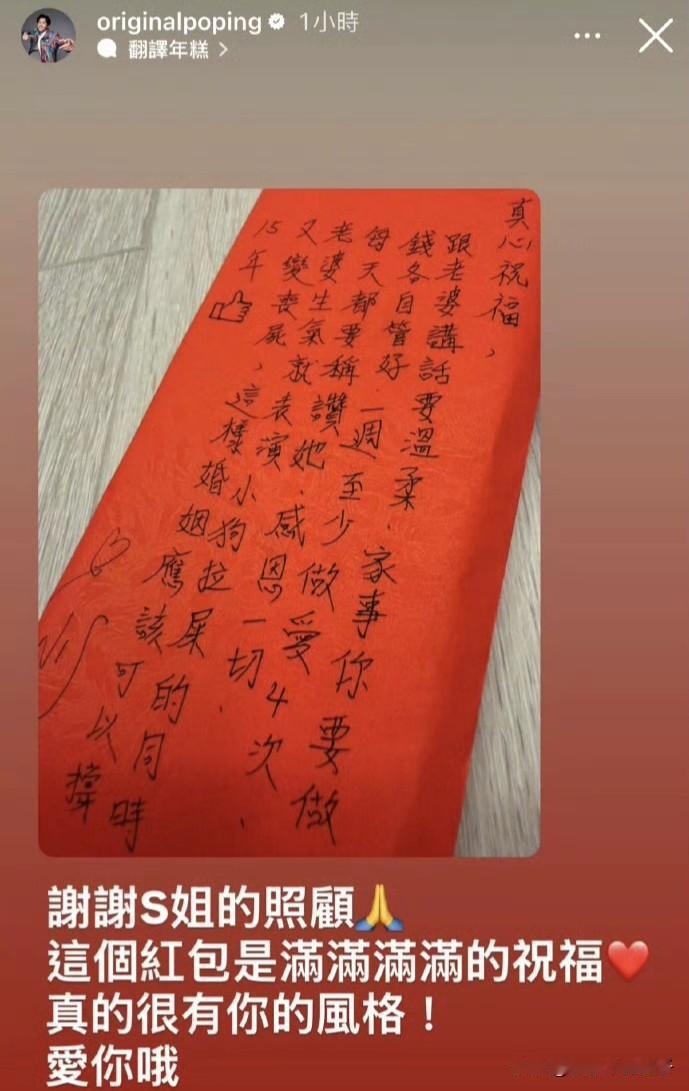 originalpoping 1小時
翻譯年糕 >
真心祝福,
跟老婆講話要溫柔、家事你要做
錢各自管好 一週至少做愛4次、
每天都要稱讚她、感恩一切、
老婆生氣就表演小狗拉屎的同時
又變喪屍、這樣婚姻應該可以撐
15年
謝謝S姐的照顧🙏
這個紅包是滿滿滿滿的祝福❤️
真的很有你的風格!
愛你哦